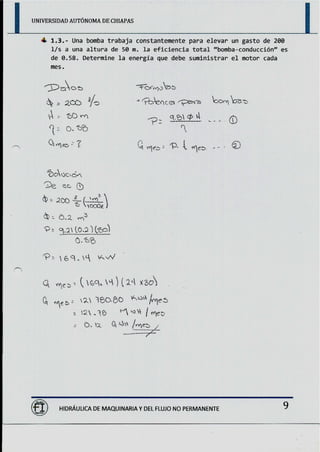 UNIVERSIDAD AUTÓNOMA DE CHIAPAS
1.3.- Una bomba trabaja constantemente para elevar un gasto de 200
l/s a una altura de 50 m. la eficiencia total "bomba-conducción" es
de 0.58. Determine la energía que debe suministrar el motor cada
mes.
Datos
Formulas
Φ = 200 l/s
* Potencia para bombas
H = 50 m
P = 9.81 Φ H / η --- ①
η = 0.58
Q mes = ?
Q mes = P. t mes --- ②
Solución
De ec ①
Φ = 200 l/s (1m³/1000l)
Φ = 0.2 m³
P = 9.81(0.2)(50) / 0.58
P = 169.14 KW
Q mes = (169.14)(24 x30)
Q mes = 121 780.80 KWH/mes
= 121.78 MWH/mes
= 0.12 GWH/mes
FI HIDRÁULICA DE MAQUINARIA Y DEL FLUJO NO PERMANENTE 9